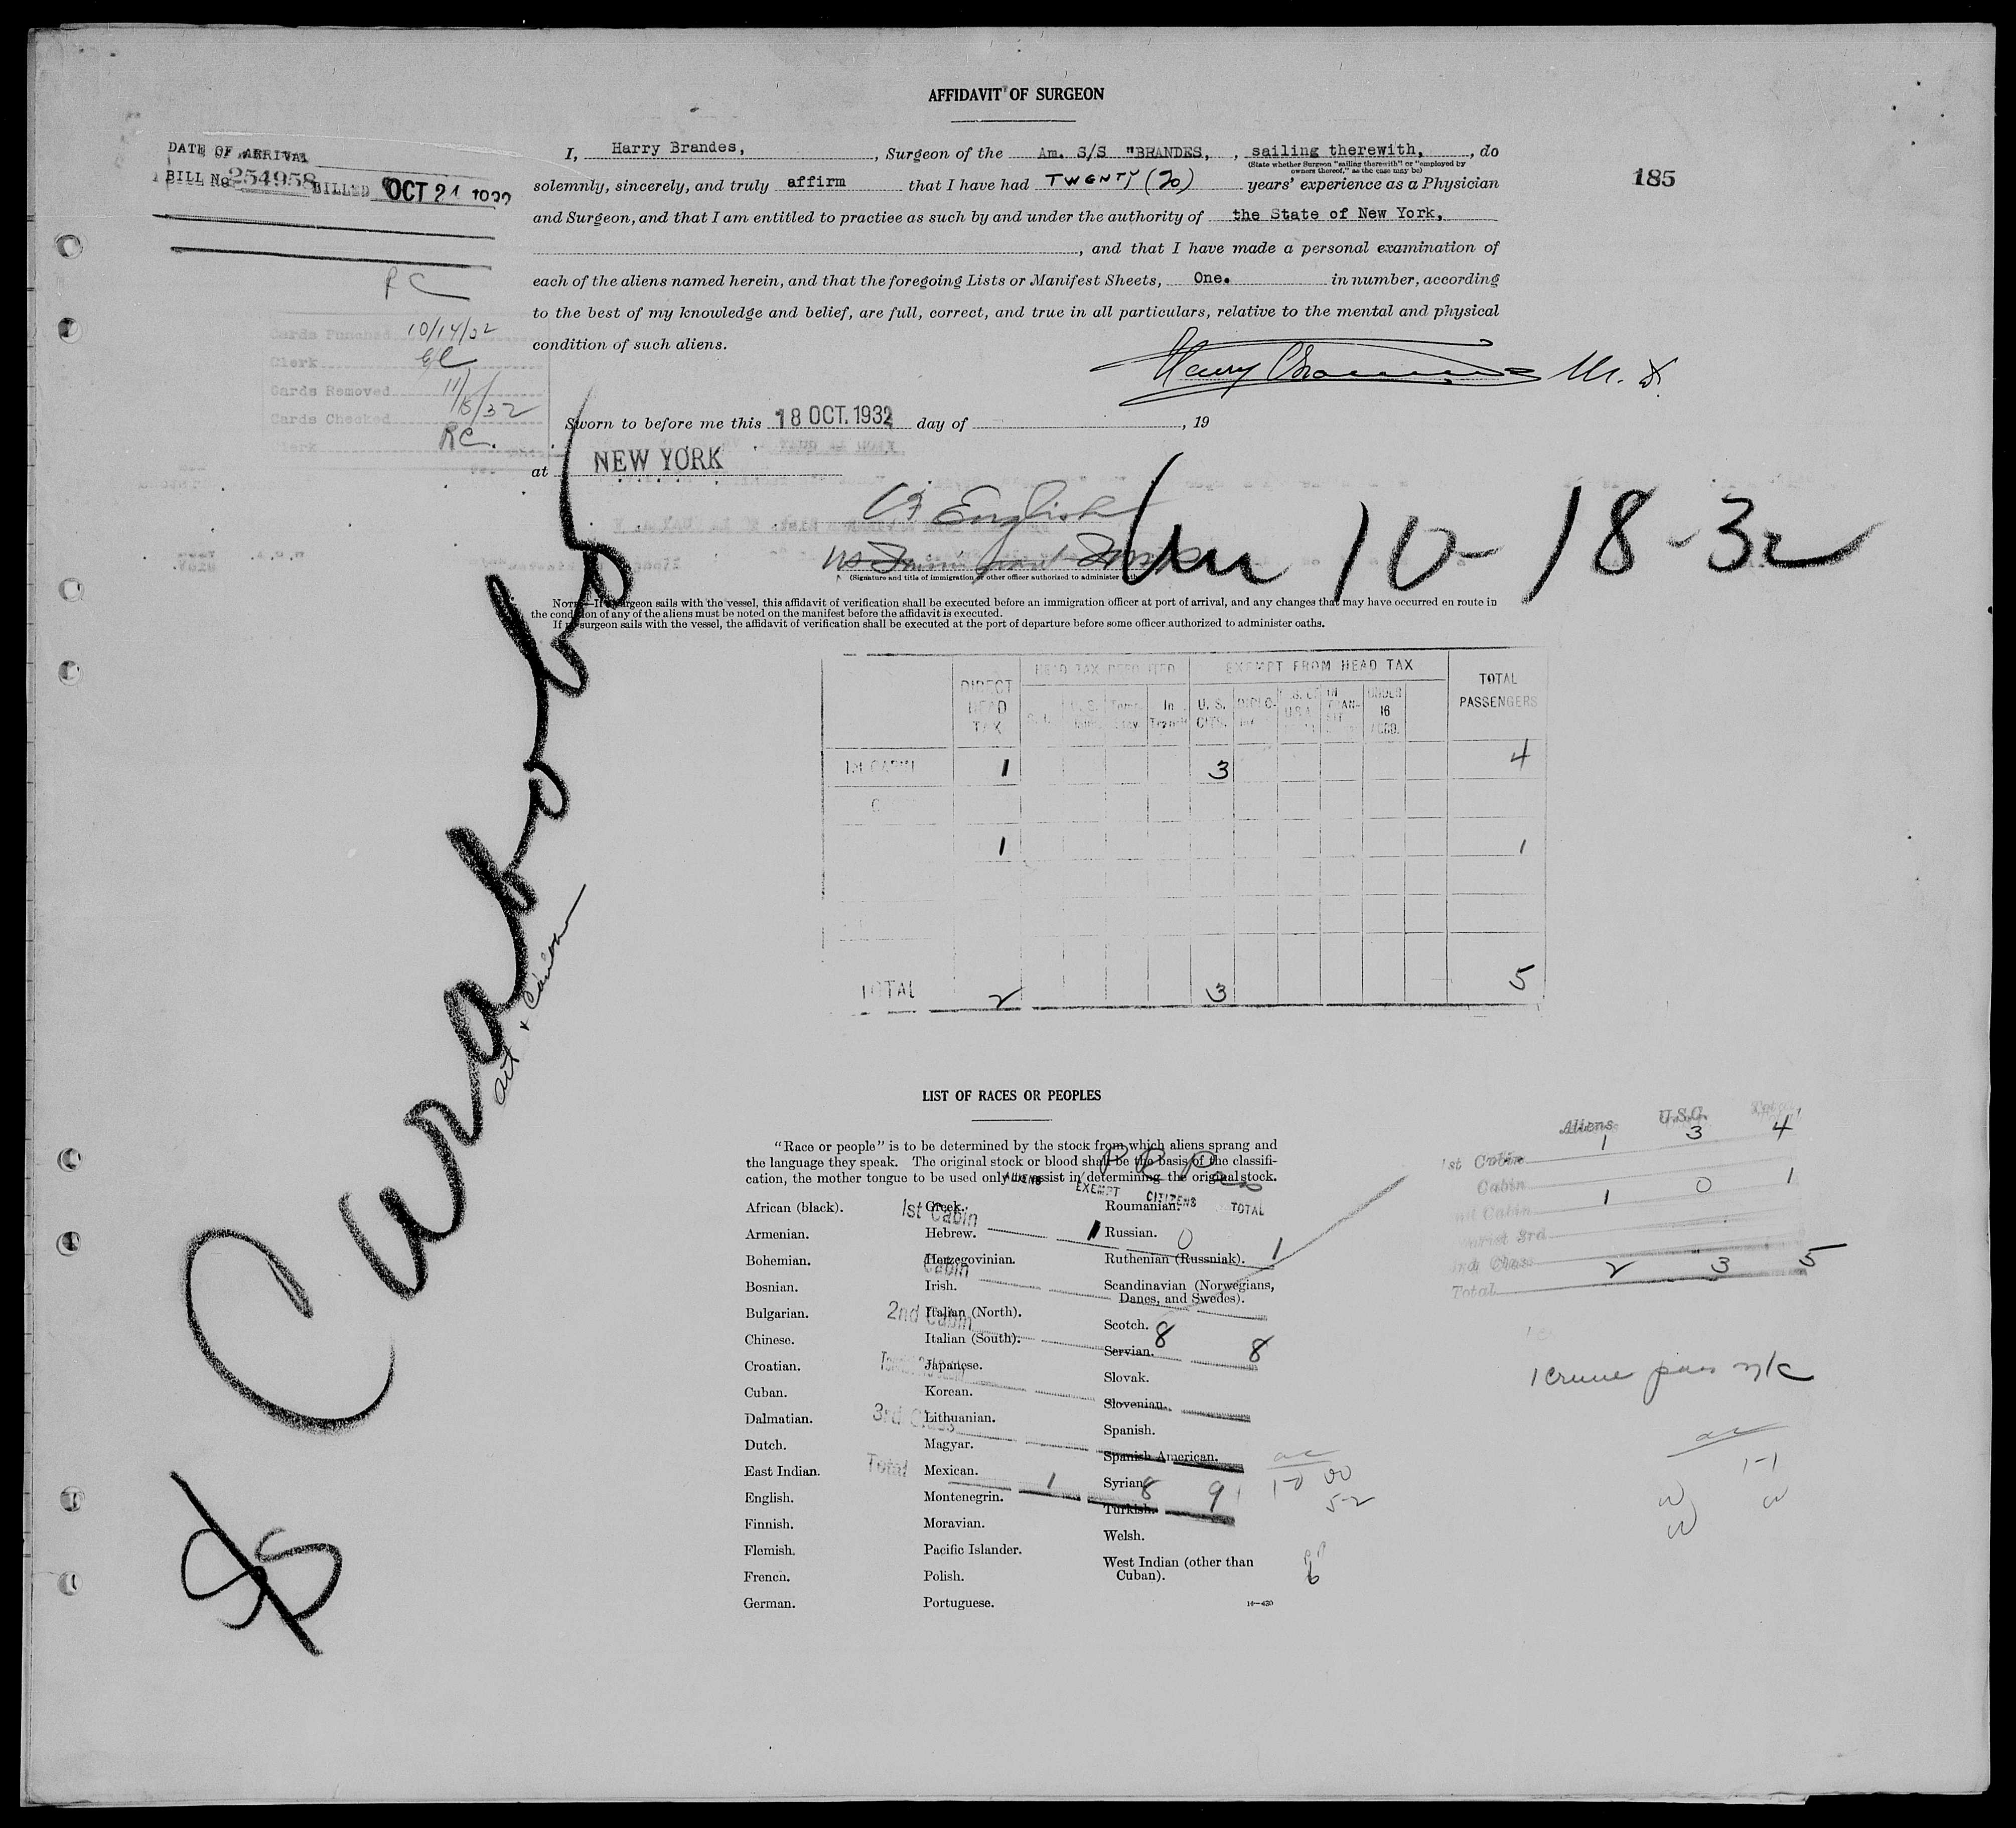 AFFIDAVIT OF SURGEON
DATE OF ARRIVAL
BILL No 254958 BILLED OCT 21
185
I, Harry Brandes, , Surgeon of the Am. S/S "BRANDES, , sailing therewith, , do
(State whether Surgeon "sailing therewith" or "employed by
owners thereof," as the case may be)
solemnly, sincerely, and truly affirm that I have had TWENTY (20) years' experience as a Physician
and Surgeon, and that I am entitled to practice as such by and under the authority of the State of New York,
, and that I have made a personal examination of
each of the aliens named herein, and that the foregoing Lists or Manifest Sheets, One. in number, according
to the best of my knowledge and belief, are full, correct, and true in all particulars, relative to the mental and physical
condition of such aliens.
Cards Punched 10/14/32
Clerk
Cards Removed 11/15/32
Cards Checked RC.
Clerk
Harry Brandes M.D.
Sworn to before me this 18 OCT. 1932 day of , 19
at NEW YORK
English
10-18-32
(Signature and title of immigration or other officer authorized to administer oaths)
NOTE.—If surgeon sails with the vessel, this affidavit of verification shall be executed before an immigration officer at port of arrival, and any changes that may have occurred en route in
the condition of any of the aliens must be noted on the manifest before the affidavit is executed.
If no surgeon sails with the vessel, the affidavit of verification shall be executed at the port of departure before some officer authorized to administer oaths.
SS Carabobo
DIRECT HEAD TAX
EXEMPT FROM HEAD TAX
TOTAL PASSENGERS
In Transit
U. S. CITS.
UNDER 16 ACCO.
1 3 4
1 1
TOTAL 2 3 5
LIST OF RACES OR PEOPLES
"Race or people" is to be determined by the stock from which aliens sprang and
the language they speak. The original stock or blood shall be the basis of the classifi-
cation, the mother tongue to be used only to assist in determining the original stock.
ALIENS EXEMPT CITIZENS TOTAL
African (black).
Armenian.
Bohemian.
Bosnian.
Bulgarian.
Chinese.
Croatian.
Cuban.
Dalmatian.
Dutch.
East Indian.
English.
Finnish.
Flemish.
French.
German.
Greek.
Hebrew.
Herzegovinian.
Irish.
Italian (North).
Italian (South).
Japanese.
Korean.
Lithuanian.
Magyar.
Mexican.
Montenegrin.
Moravian.
Pacific Islander.
Polish.
Portuguese.
Roumanian.
Russian.
Ruthenian (Russniak).
Scandinavian (Norwegians,
Danes, and Swedes).
Scotch.
Servian.
Slovak.
Slovenian.
Spanish.
Spanish American.
Syrian.
Turkish.
Welsh.
West Indian (other than
Cuban).
16—430
1st Cabin 1 0 1
Cabin
2nd Cabin 8 8
3rd Class
Total 1 8 9
Aliens U.S.C. Total
1st Cabin 1 3 4
Cabin 1 0 1
Total 2 3 5